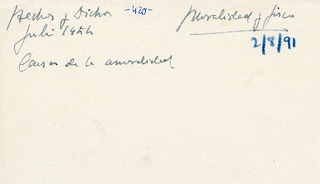 Hechos y Dichos -420-
Julio 1954
Moralidad y fisco
2/8/91
Causas de la amoralidad